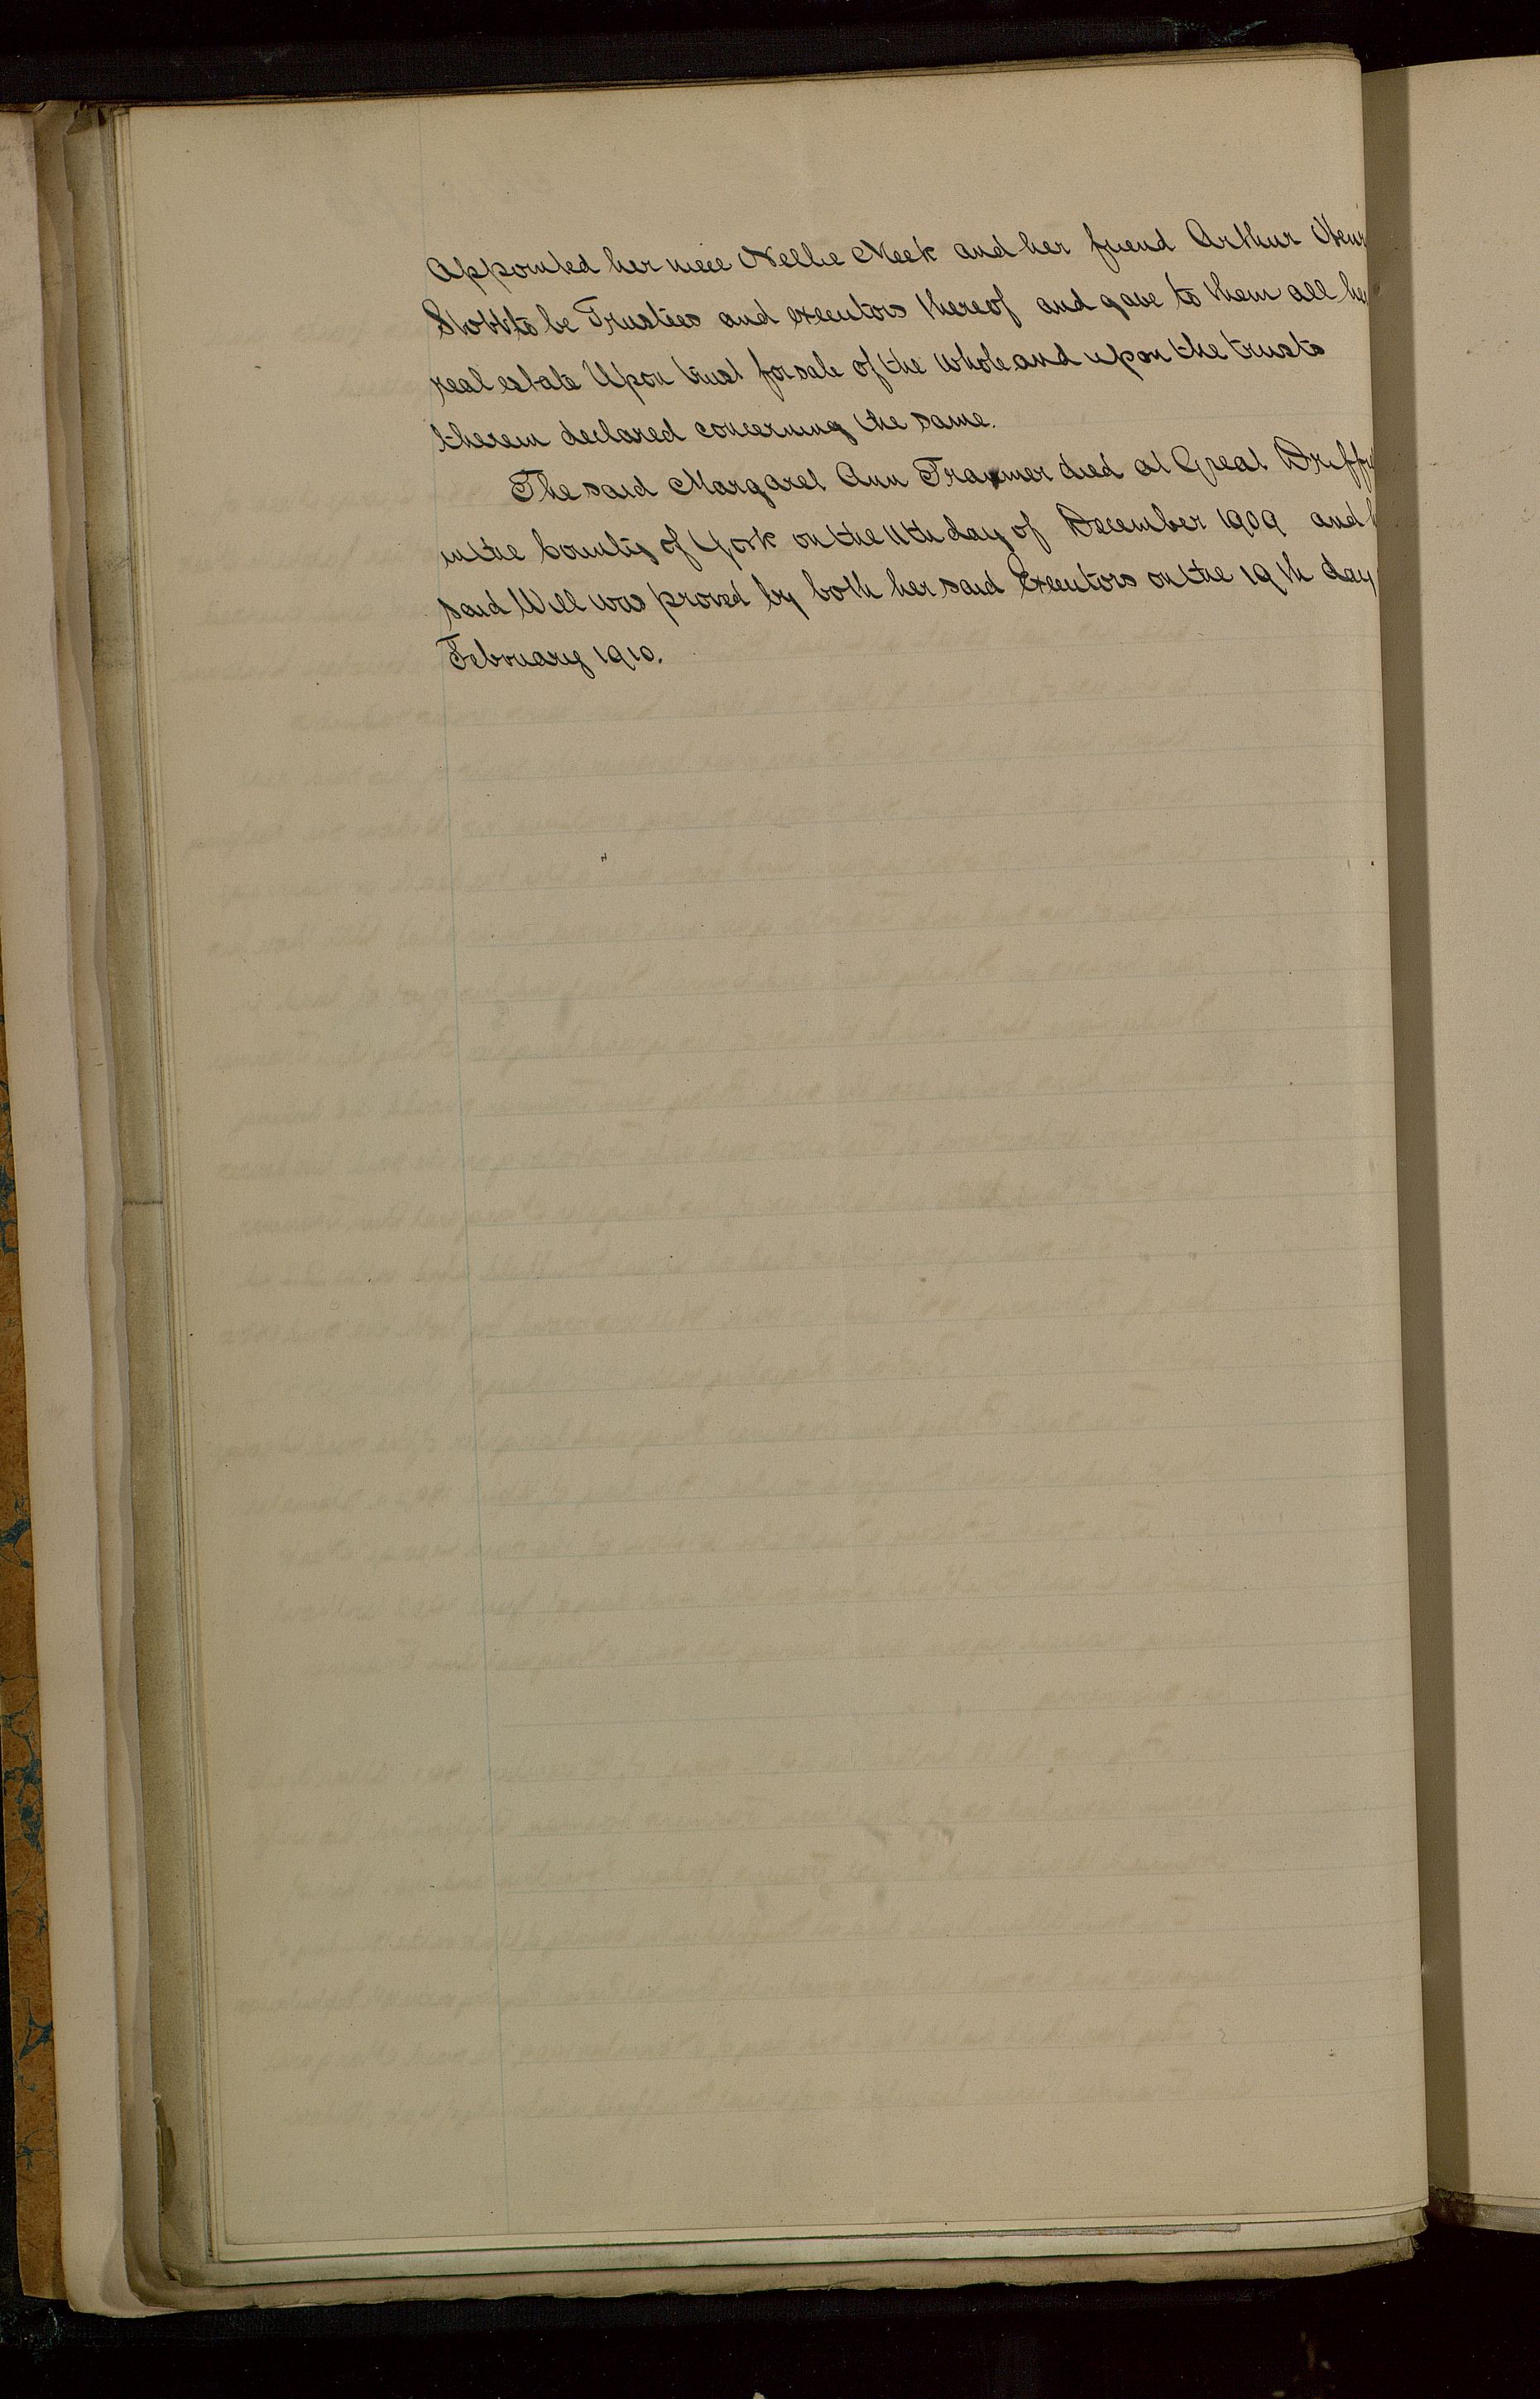 Appointed her niece Nellie Meek and her friend Arthur Henr
Stott to be Trustees and executors thereof and gave to them all he
real estate Upon trust for sale of the whole and upon the trusts
therein declared concerning the same.
The said Margaret Ann Tranmer died at Great Driffi
in the County of York on the 11th day of December 1909 and h
said Will was proved by both her said Executors on the 19th day
February 1910.